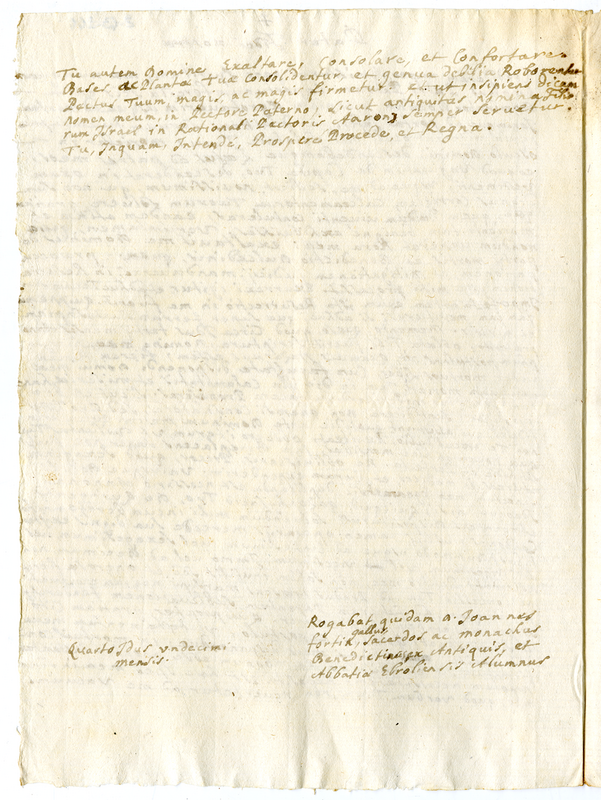 Tu autem Domine, Exaltare, Consolare, et Confortare.
Bases ac Planta tuæ Consolidentur, et genua debilia Roborentur
Pectus Tuum, magis ac magis firmetur. et ut insipiens dicam
nomen meum, in Pectore Paterno, sicut antiquitus nomina filio
rum Israel in Rationali Pectoris Aaron, semper servetur.
Tu, Inquam, Intende, Prospere Procede, et Regna.
Rogabat quidam a. Joannes
fortin, gallus, sacerdos ac monachus
Benedictinus ex Antiquis, et
Abbatiæ Ebroliensis Alumnus
Quarto Idus undecimi
mensis.